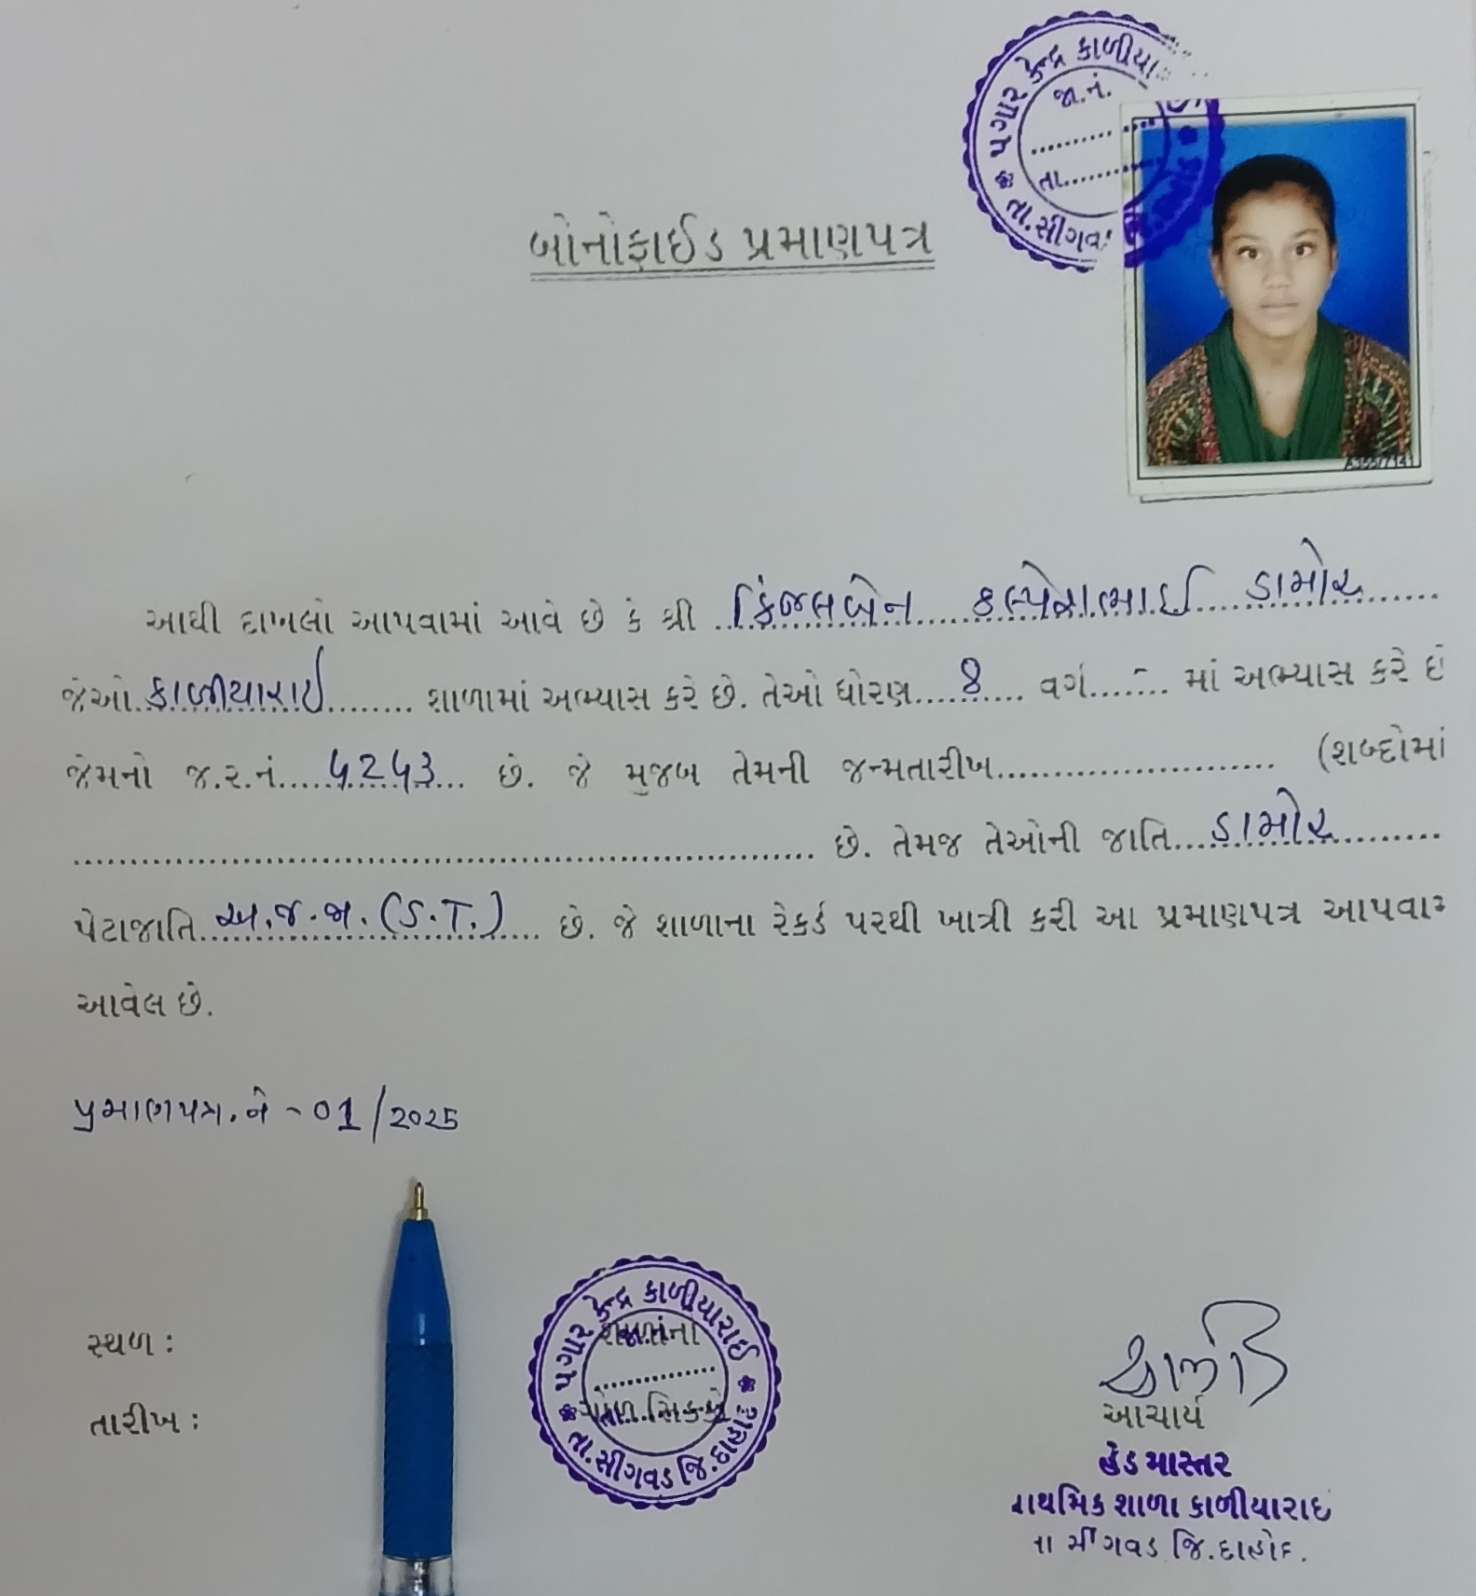 પગાર કેન્દ્ર કાળીયા
જા.નં.
તા.
તા.સીગવ
બોનોફાઈડ પ્રમાણપત્ર
આથી દાખલો આપવામાં આવે છે કે શ્રી કિંજલબેન કલ્પેશભાઈ ડામોર
જેઓ કાળીયારાઈ શાળામાં અભ્યાસ કરે છે. તેઓ ધોરણ 8 વર્ગ - માં અભ્યાસ કરે છે
જેમનો જ.ર.નં. 5253 છે. જે મુજબ તેમની જન્મતારીખ (શબ્દોમાં
છે. તેમજ તેઓની જાતિ ડામોર
પેટાજાતિ અ.જ.જા. (S.T.) છે. જે શાળાના રેકર્ડ પરથી ખાત્રી કરી આ પ્રમાણપત્ર આપવામ
આવેલ છે.
પ્રમાણપત્ર.નં - 01/2025
સ્થળ :
તારીખ :
પગાર કેન્દ્ર કાળીયારાઈ
શાળાના
ગોળ સિક્કો
તા.સીગવડ જિ.દાહોદ
આચાર્ય
હેડ માસ્તર
ાથમિક શાળા કાળીયારાઇ
તા સીંગવડ જિ.દાહોદ.